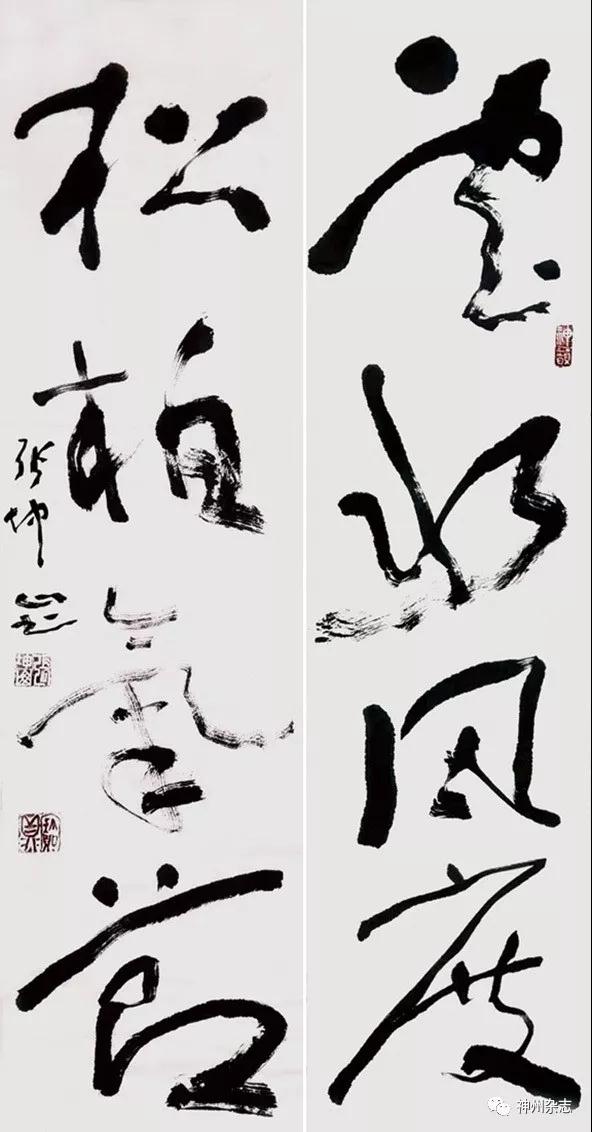 雲水风度
松柏氣节
张坤山
神州杂志